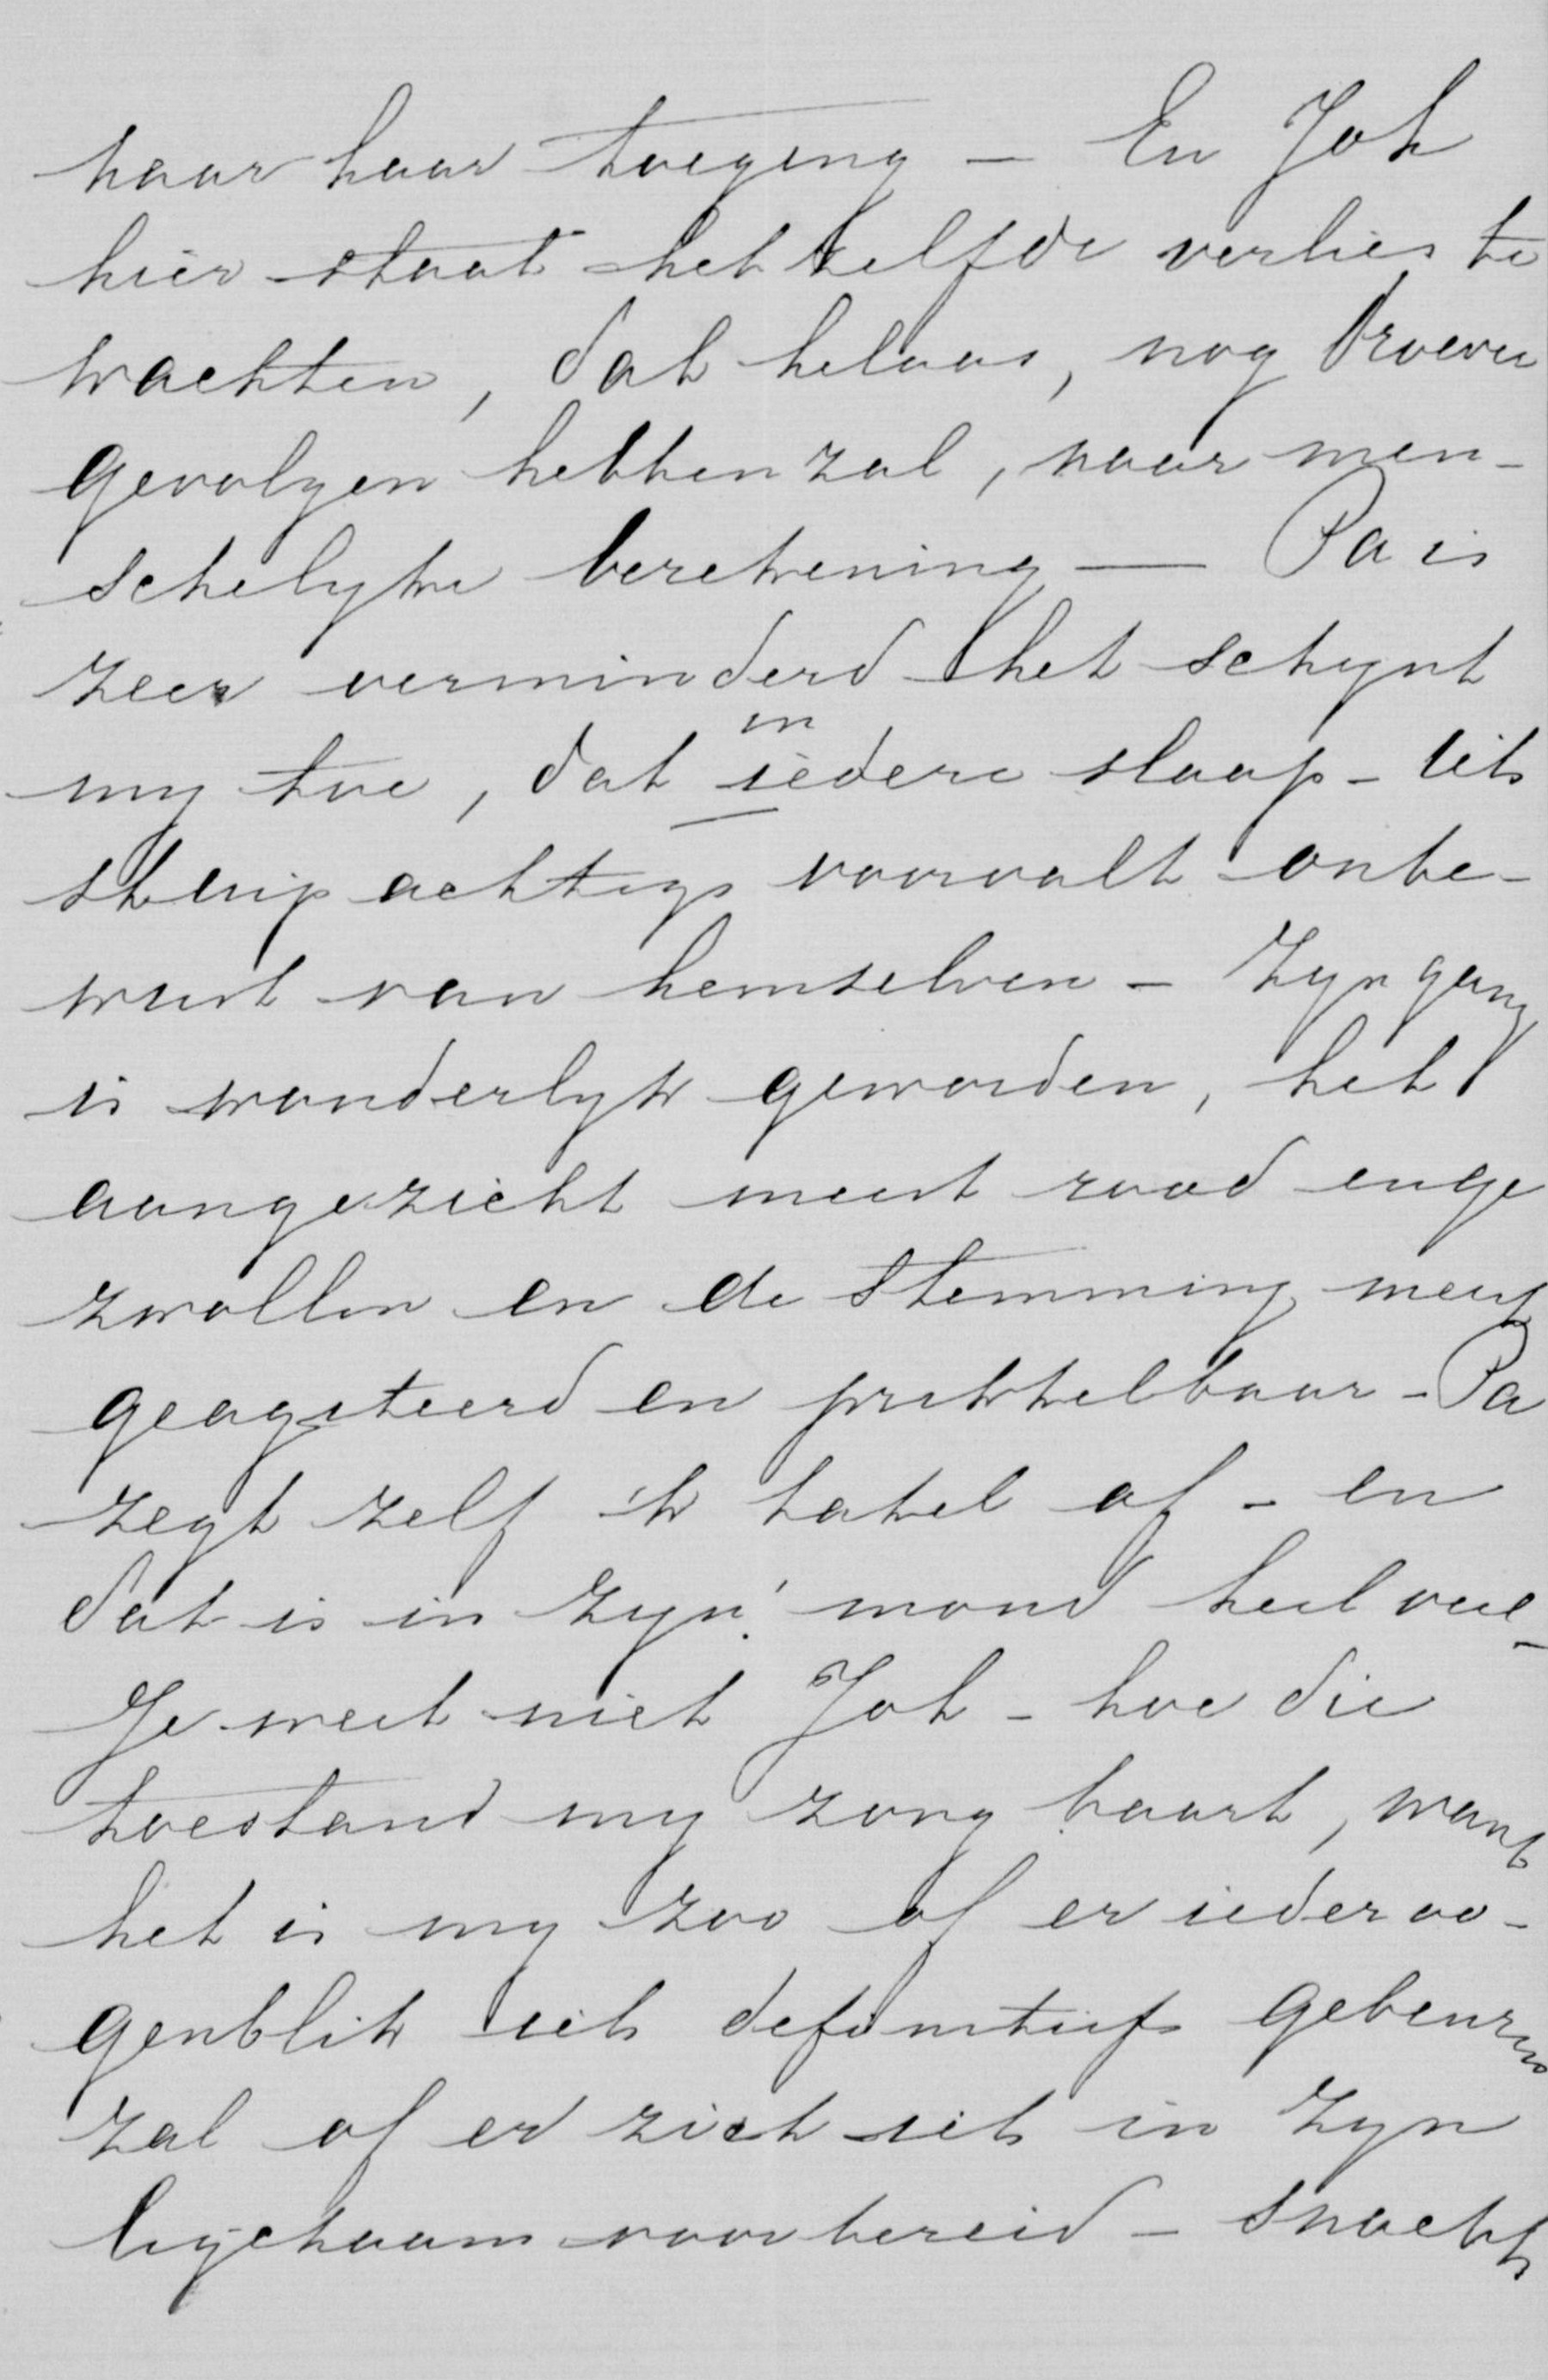 naar haar toeging — En Joh
hier staat hetzelfde verlies te
wachten, dat helaas, nog droever
gevolgen hebben zal, naar men-
schelyke berekening — Pa is
zeer verminderd het schynt
my toe, dat in iedere slaap - iets
stuip achtigs voorvalt onbe-
wust van hemselven - Zyn gang
is wonderlyk geworden, het
aangezicht meest rood en ge
zwollen en de stemming meest
geagiteerd en prikkelbaar - Pa
zegt zelf 'k takel af - en
dat is in zyn' mond heel veel -
Je weet niet Joh - hoe die
toestand my zorg baart, want
het is my zoo of er ieder oo-
genblik iets definitiefs gebeuren
zal of er zich iets in zyn
lijchaam voorbereid - snachts